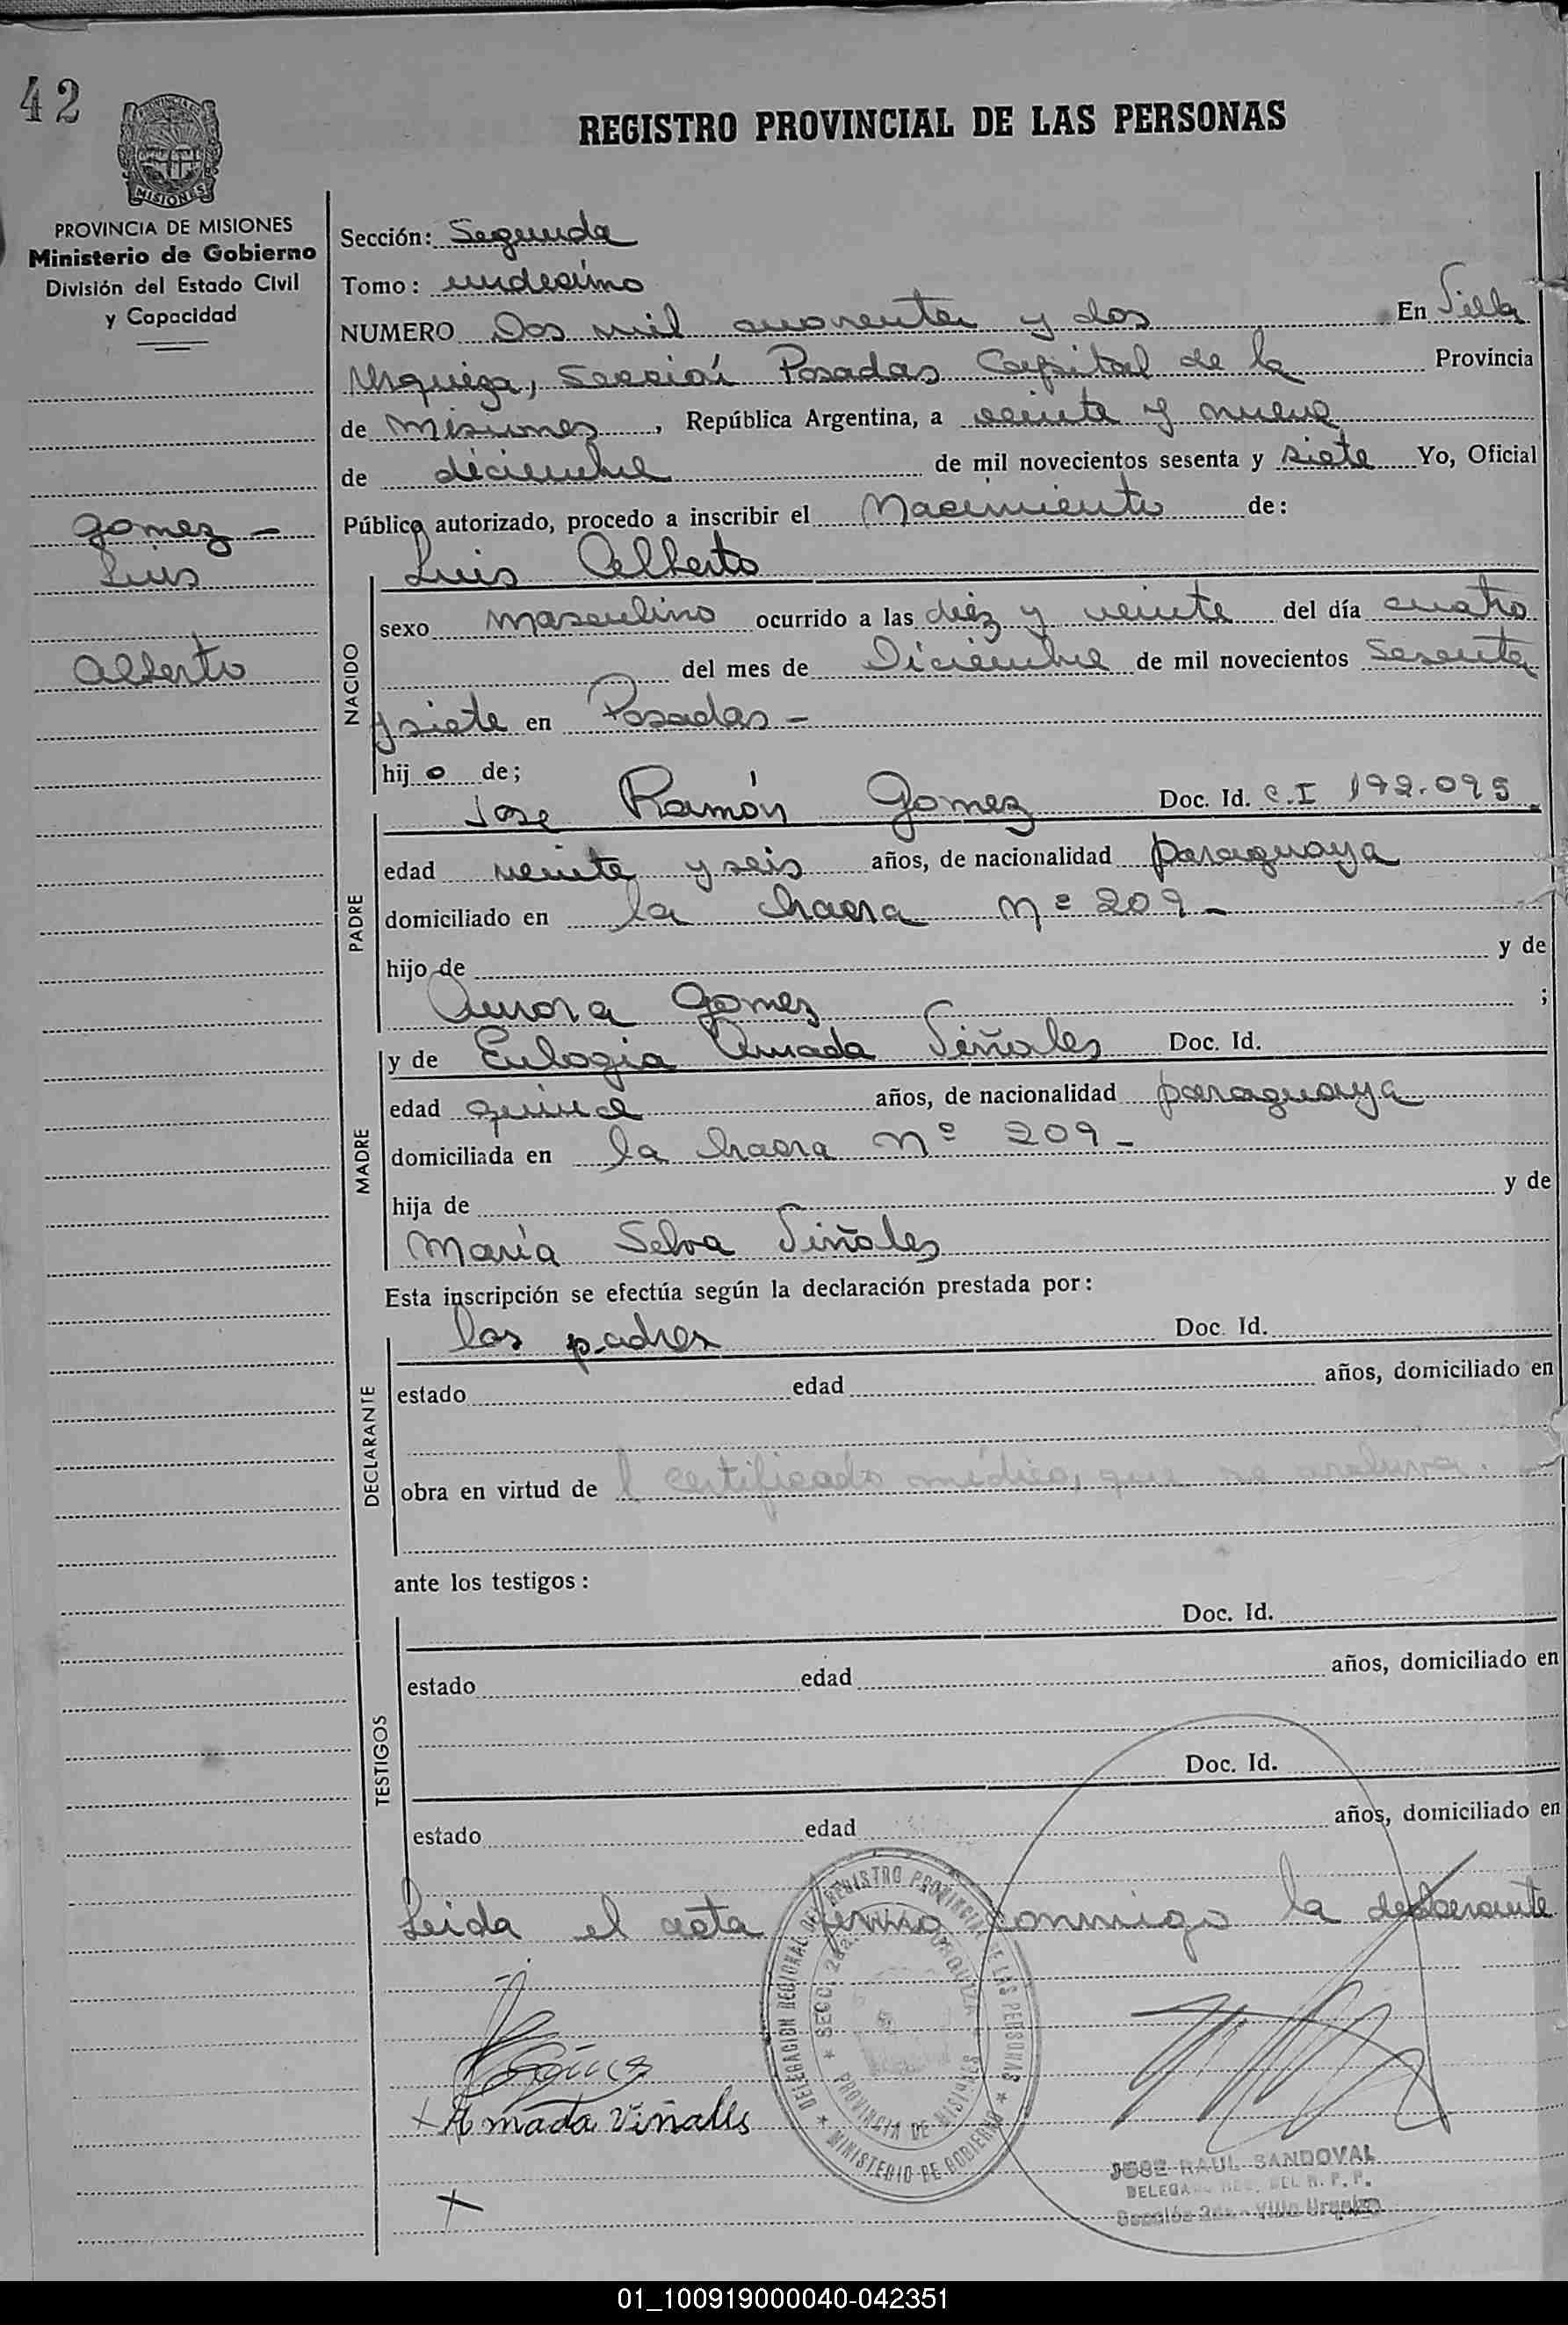 42
REGISTRO PROVINCIAL DE LAS PERSONAS
MISIONES
PROVINCIA DE MISIONES
Ministerio de Gobierno
División del Estado Civil
y Capacidad
Gomez -
Luis
Alberto
Sección: Segunda
Tomo: undesimo
NUMERO Dos mil cuarenta y dos En Villa
Urquiza, Sección Posadas Capital de la Provincia
de Misiones, República Argentina, a veinte y nueve
de diciembre de mil novecientos sesenta y siete Yo, Oficial
Público autorizado, procedo a inscribir el Nacimiento de:
Luis Alberto
NACIDO
sexo masculino ocurrido a las diez y veinte del día cuatro
del mes de Diciembre de mil novecientos sesenta
y siete en Posadas -
hijo de;
Jose Ramón Gomez Doc. Id. C.I 192.095
PADRE
edad veinte y seis años, de nacionalidad paraguaya
domiciliado en la chacra Nº 209 -
hijo de y de
Aurora Gomez ;
y de Eulogia Amada Viñales Doc. Id.
MADRE
edad quince años, de nacionalidad paraguaya
domiciliada en la chacra Nº 209 -
hija de y de
María Selva Viñales
Esta inscripción se efectúa según la declaración prestada por:
los padres Doc. Id.
DECLARANTE
estado edad años, domiciliado en
obra en virtud de l certificado médico, que se archiva.
ante los testigos:
Doc. Id.
TESTIGOS
estado edad años, domiciliado en
Doc. Id.
estado edad años, domiciliado en
Leida el acta firma conmigo la declarante
DELEGACION REGIONAL DEL REGISTRO PROVINCIAL DE LAS PERSONAS
MINISTERIO DE GOBIERNO
SECC. 2da. URQUIZA
PROVINCIA DE MISIONES
+ Amada Viñales
JOSE RAUL SANDOVAL
DELEGADO REG. DEL R. P. P.
Sección 2da. - Villa Urquiza
01_100919000040-042351